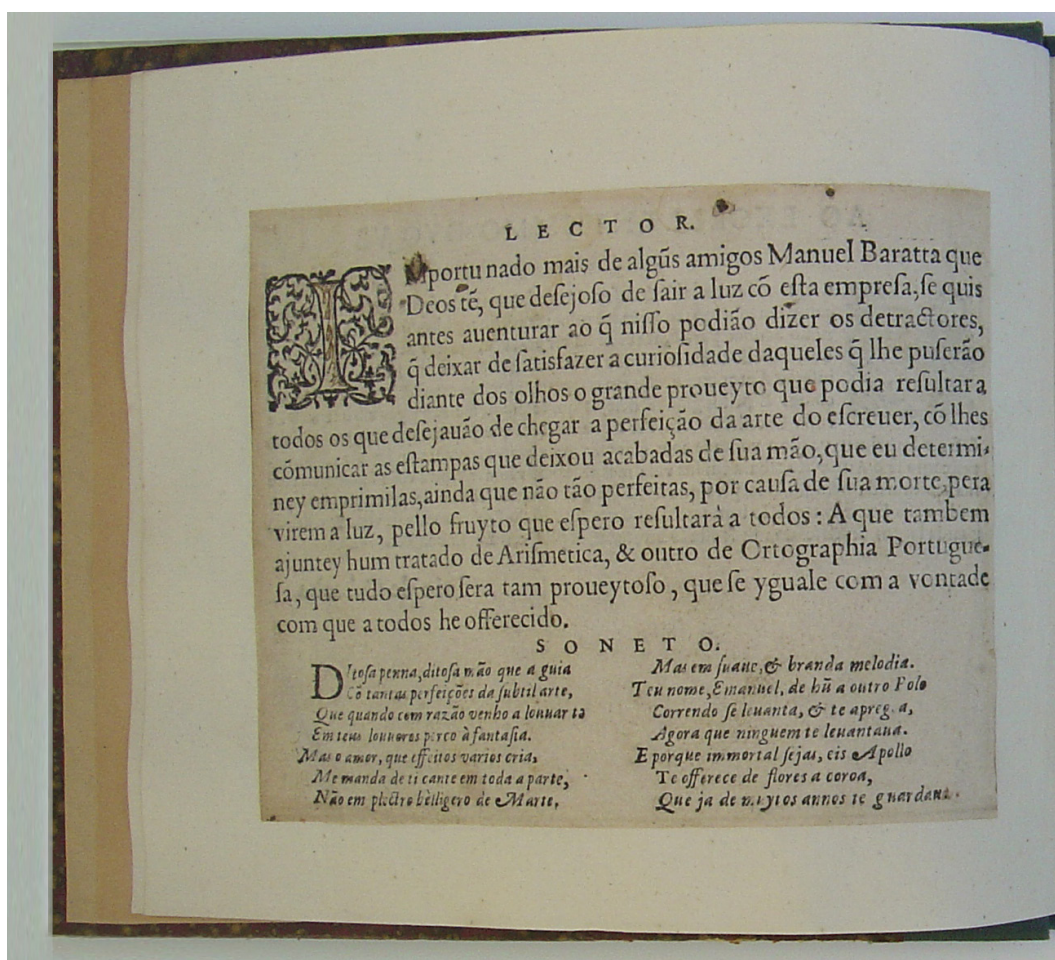 LECTOR.
IMportunado mais de algũs amigos Manuel Baratta que
Deos tẽ, que deſejoſo de ſair a luz cõ eſta empreſa, ſe quis
antes auenturar ao q̃ niſſo podião dizer os detractores,
q̃ deixar de ſatisfazer a curioſidade daqueles q̃ lhe puſerão
diante dos olhos o grande proueyto que podia reſultar a
todos os que deſejauão de chegar a perfeição da arte do eſcreuer, cõ lhes
cõmunicar as eſtampas que deixou acabadas de ſua mão, que eu determi-
ney emprimilas, ainda que não tão perfeitas, por cauſa de ſua morte, pera
virem a luz, pello fruyto que eſpero reſultarà a todos : A que tambem
ajuntey hum tratado de Ariſmetica, & outro de Ortographia Portugue-
ſa, que tudo eſpero ſera tam proueytoſo, que ſe yguale com a vontade
com que a todos he offerecido.
SONETO.
DItoſa penna, ditoſa mão que a guia
Cõ tantas perfeições da ſubtil arte,
Que quando com razão venho a louuar te
Em teus louuores perco à fantaſia.
Mas o amor, que effeitos varios cria,
Me manda de ti cante em toda a parte,
Não em plectro bèlligero de Marte,
Mas em ſuaue, & branda melodia.
Teu nome, Emanuel, de hũ a outro Polo
Correndo ſe leuanta, & te apregoa,
Agora que ninguem te leuantaua.
E porque immortal ſejas, eis Apollo
Te offerece de flores a coroa,
Que ja de muytos annos te guardaua.